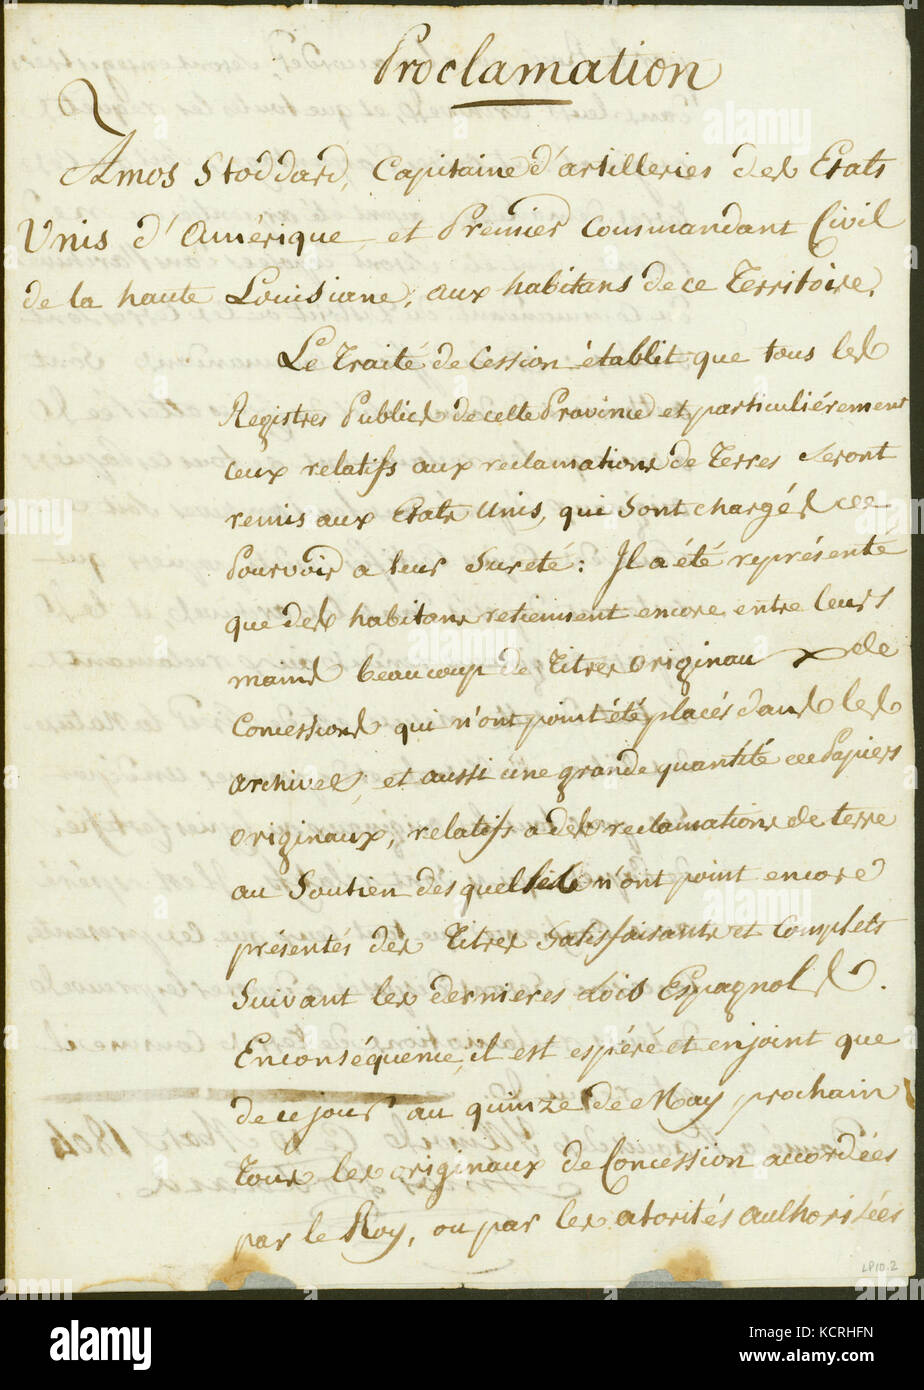 Proclamation
Amos Stoddard, Capitaine d'artilleries des Etats
Unis d'Amérique et Premier Commandant Civil
de la haute Louisiane, aux habitans de ce Territoire.
Le Traité de Cession établit que tous les
Registres Publics de cette Province et particuliérement
ceux relatifs aux reclamations de Terres seront
remis aux Etats Unis, qui sont chargés de
Pourvoir a leur Sureté: Il a été représenté
que des habitans retiennent encore entre leurs
mains beaucoup de Titres originaux de
Concessions qui n'ont point été placés dans les
archives, et aussi une grande quantité de Papiers
originaux, relatifs a des reclamations de terre
au Soutien desquelles n'ont point encore
présentés des Titres Satisfaisants et Complets
Suivant les dernieres lois Espagnols.
En conséquence, il est espéré et enjoint que
de ce jour au quinze de May prochain
Tous les originaux de Concession accordées
par le Roy, ou par les atorités authorisées
LP10.2
alamy
Image ID: KCRHFN
www.alamy.com